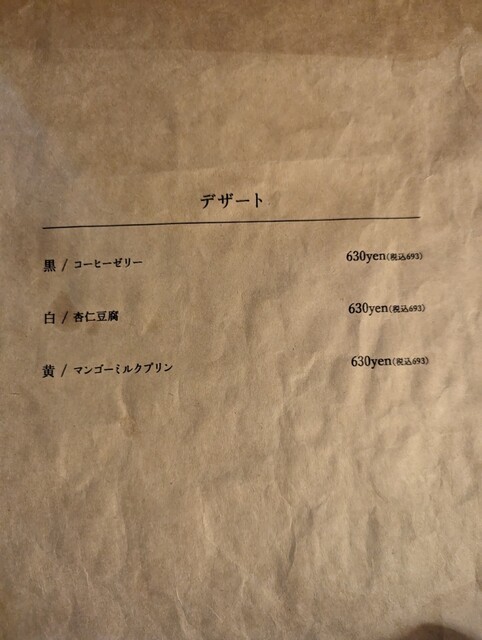 デザート
黒 / コーヒーゼリー 630yen(税込693)
白 / 杏仁豆腐 630yen(税込693)
黄 / マンゴーミルクプリン 630yen(税込693)